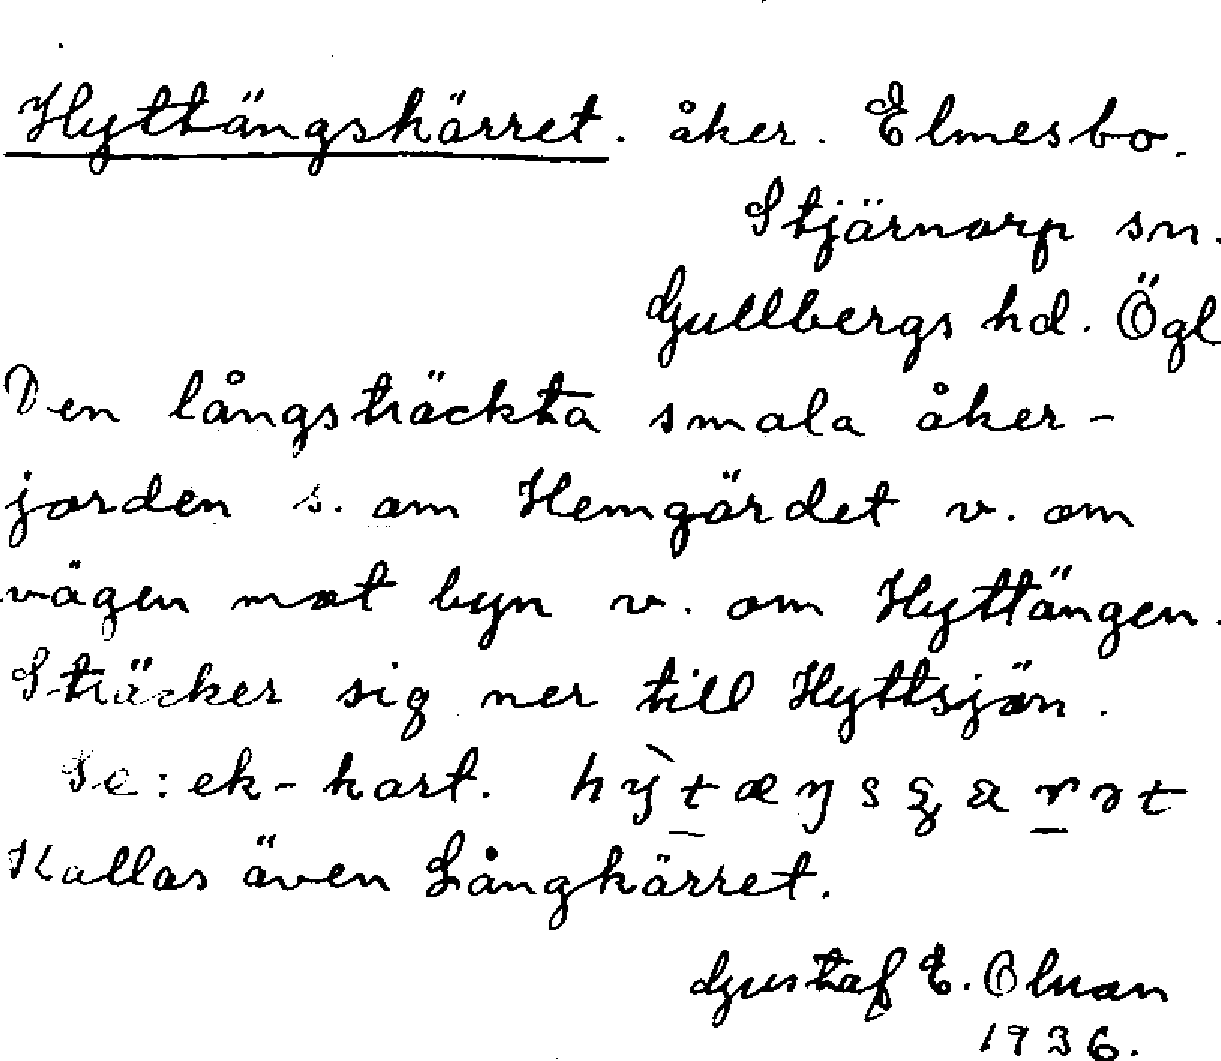 Hyttängskärret. åker. Elmesbo.
Stjärnorp sn.
Gullbergs hd. Ögl
Den långsträckta smala åker-
jorden s. om Hemgärdet v. om
vägen mot byn v. om Hyttängen.
Sträcker sig ner till Hyttsjön.
Se: ek-kart.
Kallas även Långkärret.
Gustaf E. Olson
1936.